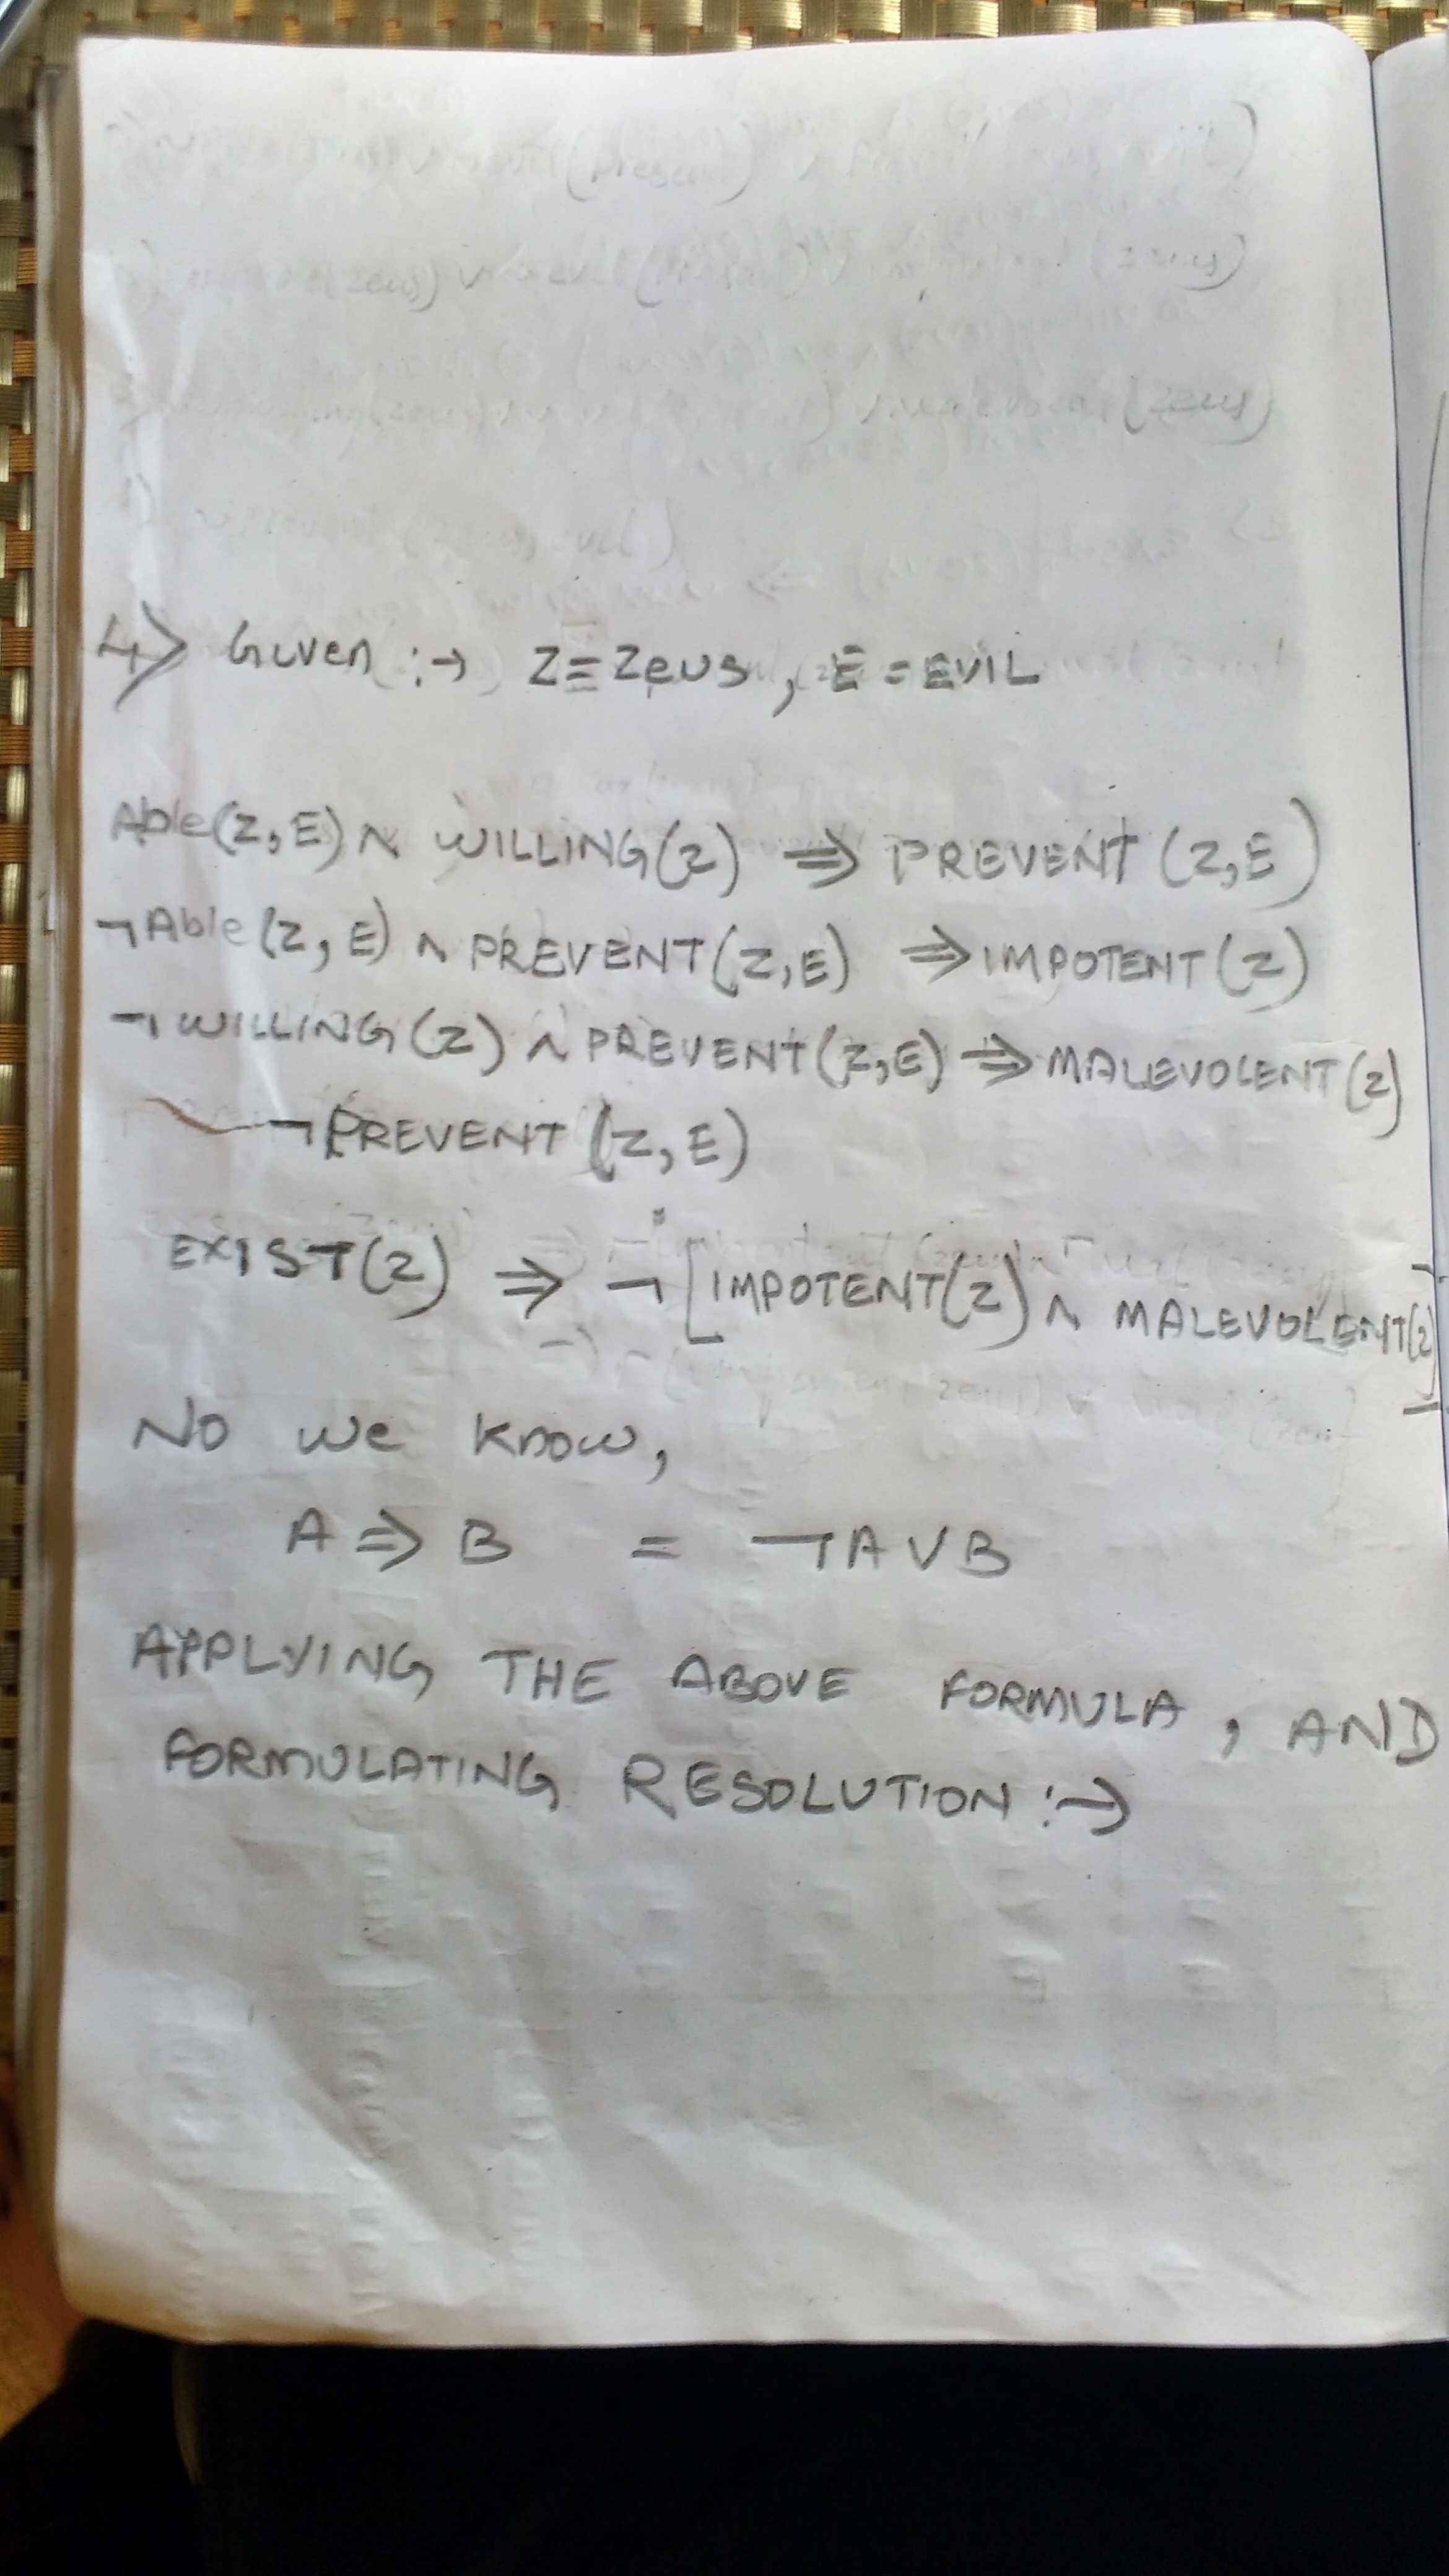 4> Given :→ Z = Zeus, E = EVIL
Able(Z,E) ∧ WILLING(Z) ⇒ PREVENT (Z,E)
¬Able(Z,E) ∧ PREVENT(Z,E) ⇒ IMPOTENT(Z)
¬WILLING(Z) ∧ PREVENT(Z,E) ⇒ MALEVOLENT(Z)
¬PREVENT(Z,E)
EXIST(Z) ⇒ ¬[IMPOTENT(Z) ∧ MALEVOLENT(Z)]
No we know,
A ⇒ B = ¬A∨B
APPLYING THE ABOVE FORMULA, AND
FORMULATING RESOLUTION :→